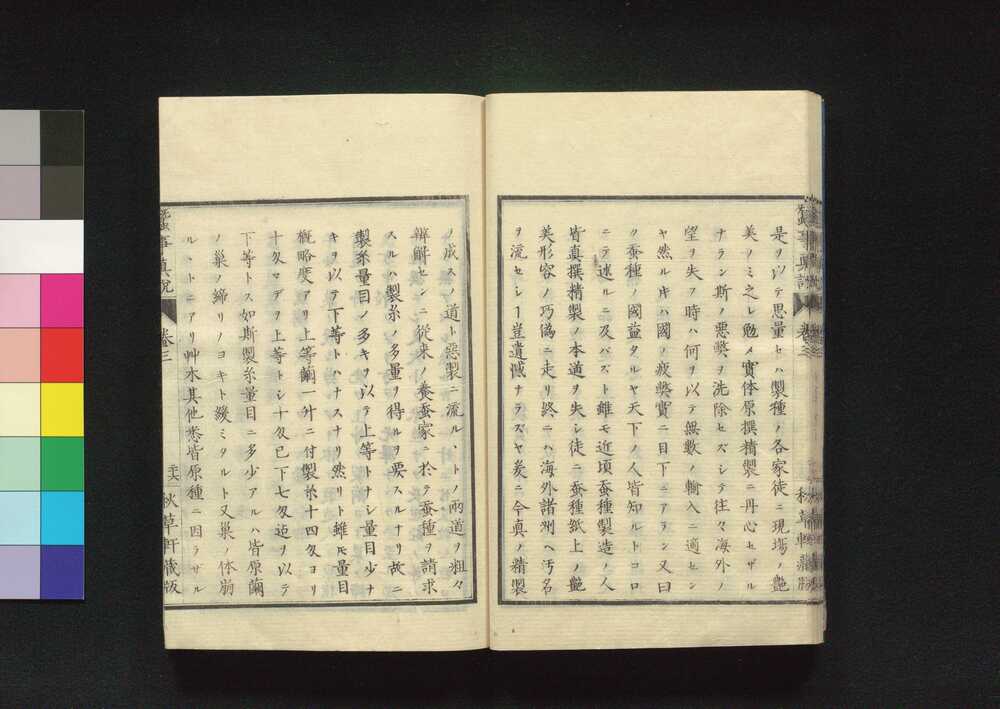 是ヲ以テ思量セハ製種ノ各家徒ニ現塲ノ艶
美ノミ之レ勉メ實体原撰精製ニ丹心セザル
ナラン斯ノ悪獘ヲ洗除セズシテ往々海外ノ
望ヲ失フ時ハ何ヲ以テ無數ノ輸入ニ適セン
ヤ然ル片ハ國ノ疲獘實ニ目下ニアラン又曰
ク蚕種ノ國益タルヤ天下ノ人皆知ルトコロ
ニテ述ルニ及バズト雖モ近頃蚕種製造ノ人
皆真撰精製ノ本道ヲ失シ徒ニ蚕種紙上ノ艶
美形容ノ巧偽ニ走リ終ニハ海外諸洲ヘ汚名
ヲ流セシヿ豈遺憾ナラズヤ爰ニ今真ノ精製
ノ成スノ道ト惡製ニ流ル丶トノ兩道ヲ粗々
辨觧センニ從来ノ養蚕家ニ於テ蚕種ヲ請求
スルハ製糸ノ多量ヲ得ルヲ要スルナリ故ニ
製糸量目ノ多キヲ以テ上等トナシ量目少ナ
キヲ以テ下等トハナスナリ然リト雖𪜈量目
概略度アリ上等繭一升ニ付製糸十四匁ヨリ
十匁マデヲ上等トシ十匁已下七匁迠ヲ以テ
下等トス如斯製糸量目ニ多少アルハ皆原繭
ノ巣ノ締リノヨキト緩ミタルト又巣ノ体崩
ル丶トニアリ艸木其他悉皆原種ニ因ラザル
蚕事真説 巻三 秋草軒蔵版